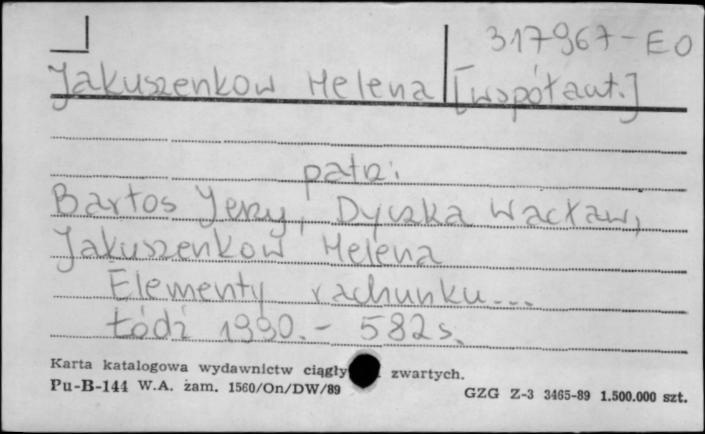 317967-EO
Jakuszenkow Helena [współaut.]
patrz:
Bartos Jerzy, Dyczka Wacław,
Jakuszenkow Helena
Elementy rachunku...
Łódź 1990. - 582 s.
Karta katalogowa wydawnictw ciągły zwartych.
Pu-B-144 W.A. zam. 1560/On/DW/89 GZG Z-3 3465-89 1.500.000 szt.